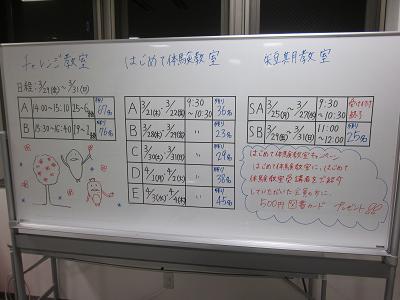 チャレンジ教室
日程:3/29(金)〜3/31(日)
A 14:00〜15:10 25〜6歳 残り67名
B 15:30〜16:40 19〜 残り76名
はじめて体験教室
A 3/21(木)〜3/22(金) 9:30〜10:30 残り36名
B 3/27(水)〜3/28(木) 〃 残り23名
C 3/30(土)〜3/31(日) 〃 残り29名
D 4/1(月)〜4/2(火) 〃 残り38名
E 4/3(水)〜4/4(木) 〃 残り45名
短期教室
SA 3/25(月)〜3/27(水) 9:30〜10:30 受け付け終了
SB 3/29(金)〜3/31(日) 11:00〜12:00 残り25名
はじめて体験教室キャンペーン
はじめて体験教室に、はじめて
体験教室受講者をご紹介
していただいた会員の方に、
500円図書カード プレゼント